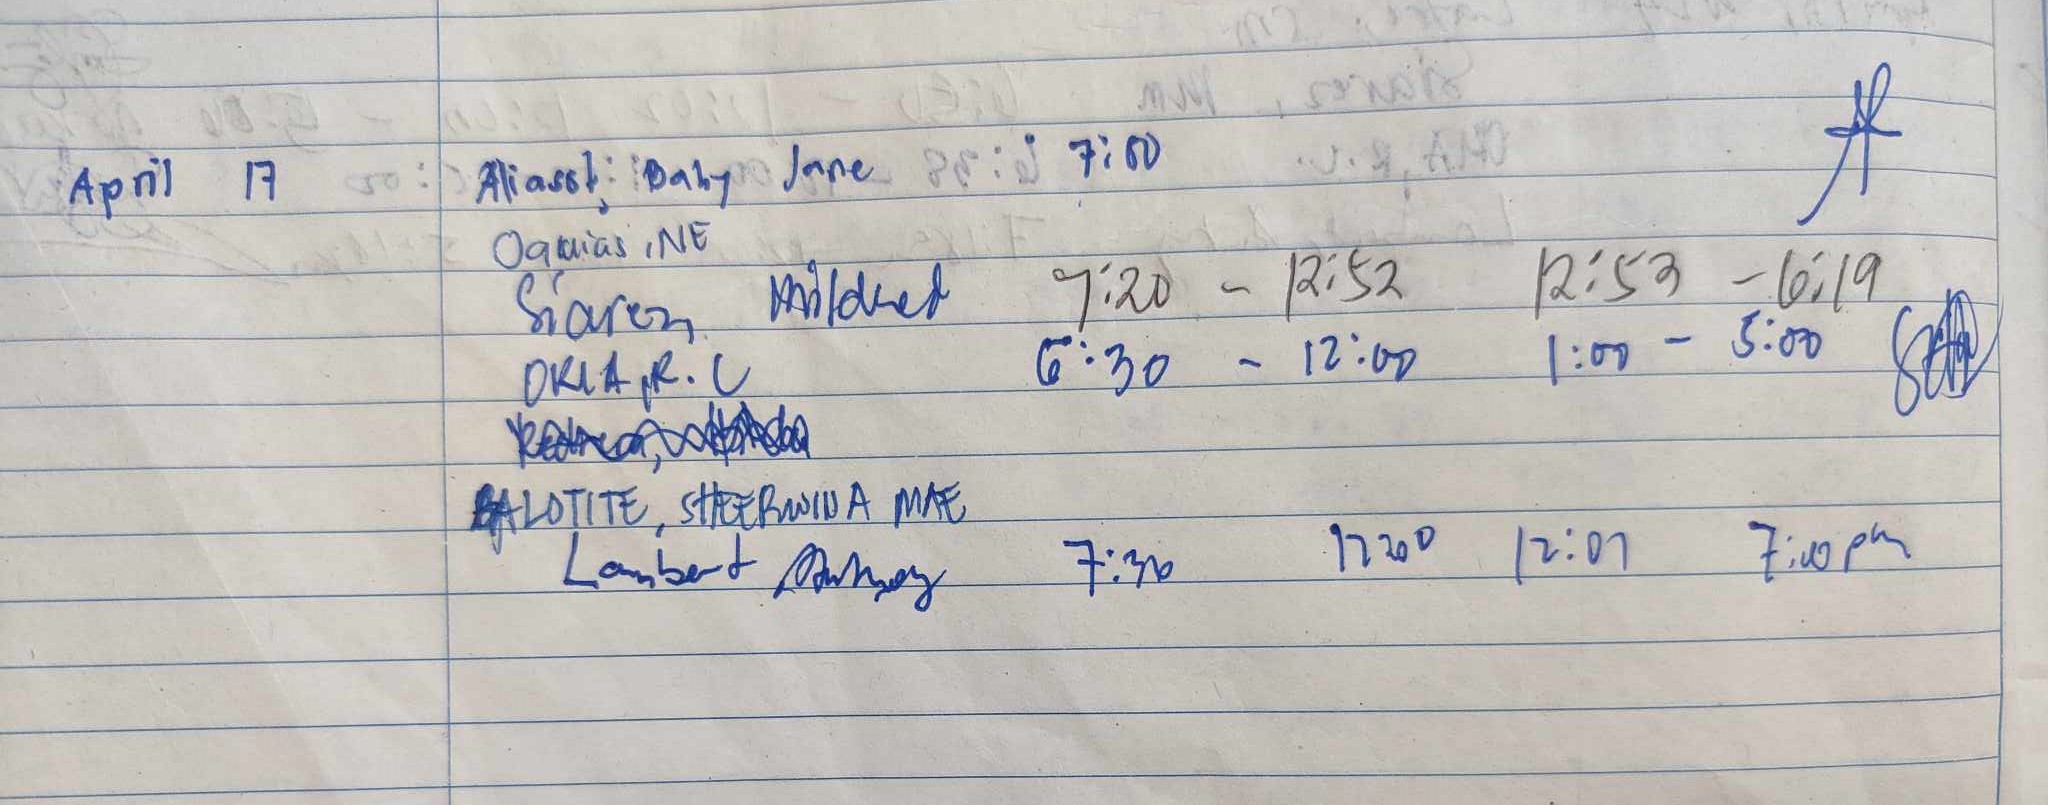 April 17 Aliasot, Baby Jane 7:00
Oamias, NE
Siarez, Mildred 7:20 - 12:52 12:53 - 6:19
ORLA, R. C 6:30 - 12:00 1:00 - 5:00
BALOTITE, SHEERWINA MAE
Lambert 7:30 1200 12:01 7:00 pm